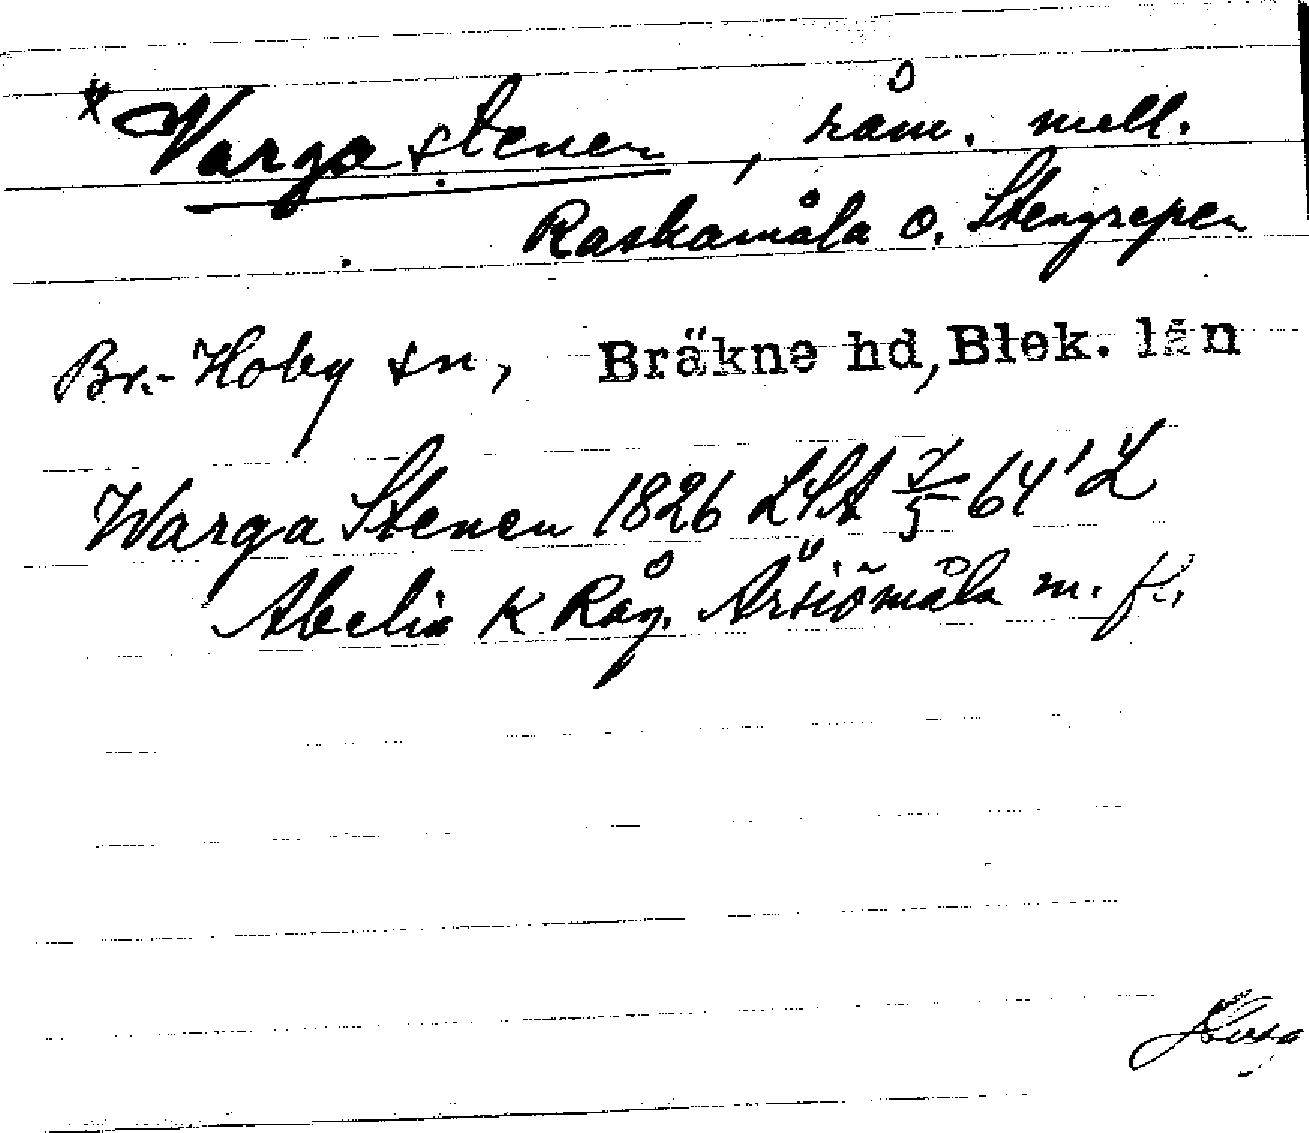 *Vargastenen, råm. mell.
Raskamåla o. Stengrepen
Br.-Hoby sn, Bräkne hd, Blek. län
Warga Stenen 1826 LSA 7/5 64' L
Abelin K Råg. Årsiömåla m. fl.